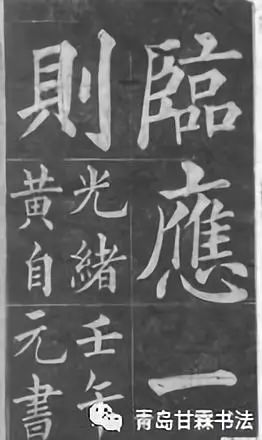 臨應一
則
光緒壬午
黄自元書
青岛甘霖书法